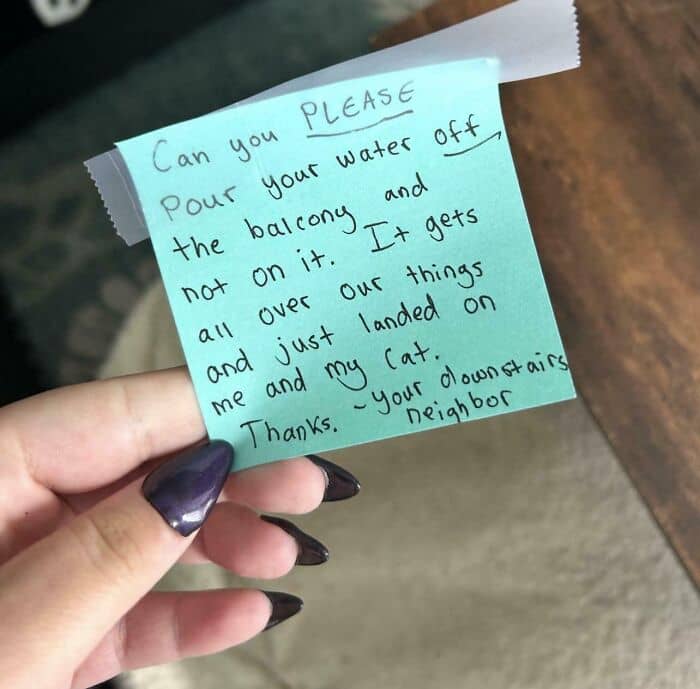 Can you PLEASE
Pour your water off
the balcony and
not on it. It gets
all over our things
and just landed on
me and my cat.
Thanks. ~ your downstairs
neighbor